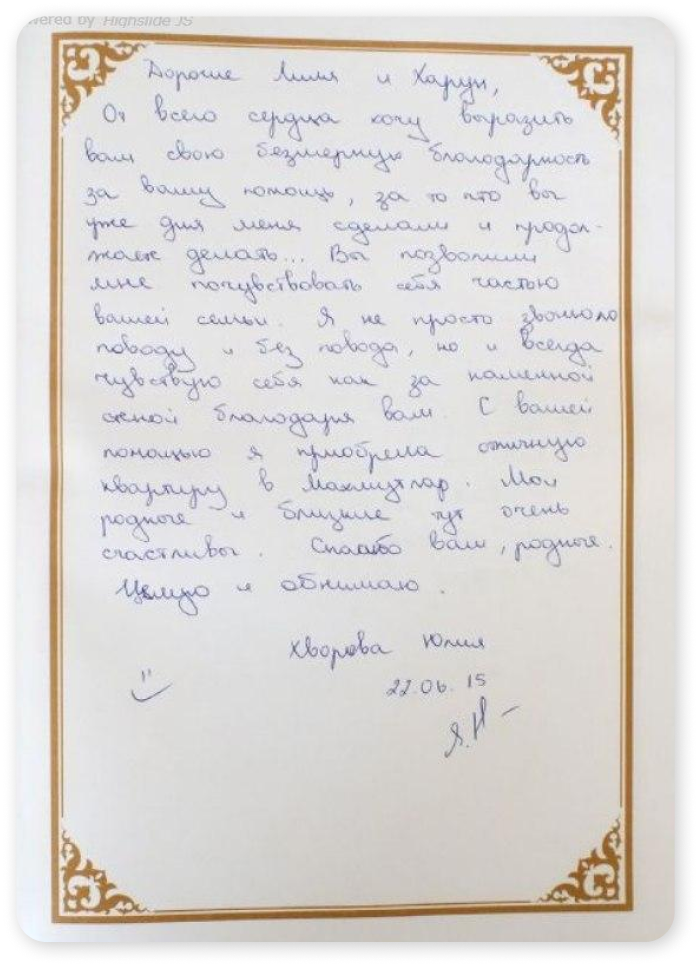 owered by Highslide JS
Дорогие Лиля и Харун,
От всего сердца хочу выразить
вам свою безмерную благодарность
за вашу помощь, за то что вы
уже для меня сделали и продол-
жаете делать... Вы позволили
мне почувствовать себя частью
вашей семьи. Я не просто звонила
поводу и без повода, но и всегда
чувствую себя как за каменной
стеной благодаря вам. С вашей
помощью я приобрела отличную
квартиру в Махмутлар. Мои
родные и близкие тут очень
счастливы. Спасибо вам, родные.
Целую и обнимаю.
Хворова Юлия
22.06.15